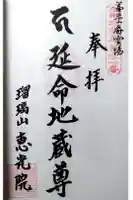 奉拝
延命地蔵尊
瑠璃山 恵光院